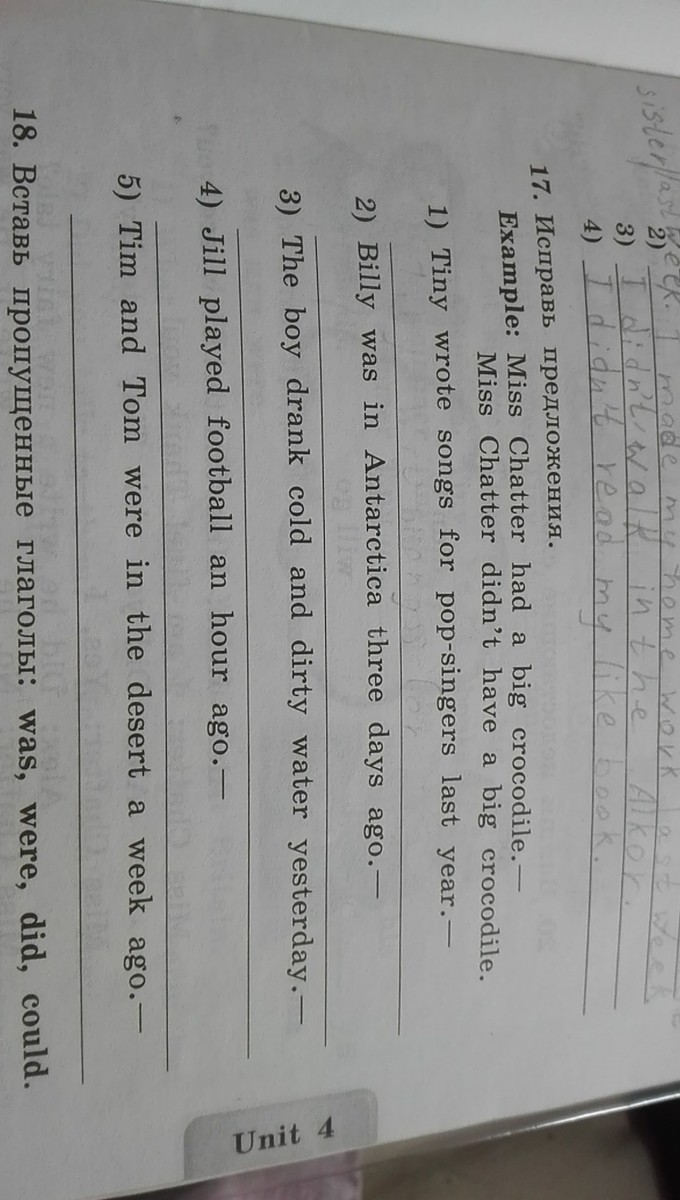 sister/last week. I made my home work last week
2)
3) I didn't walk in the Alkor.
4) I didn't read my like book.
17. Исправь предложения.
Example: Miss Chatter had a big crocodile.—
Miss Chatter didn't have a big crocodile.
1) Tiny wrote songs for pop-singers last year.—
2) Billy was in Antarctica three days ago.—
3) The boy drank cold and dirty water yesterday.—
4) Jill played football an hour ago.—
5) Tim and Tom were in the desert a week ago.—
18. Вставь пропущенные глаголы: was, were, did, could.
Unit 4